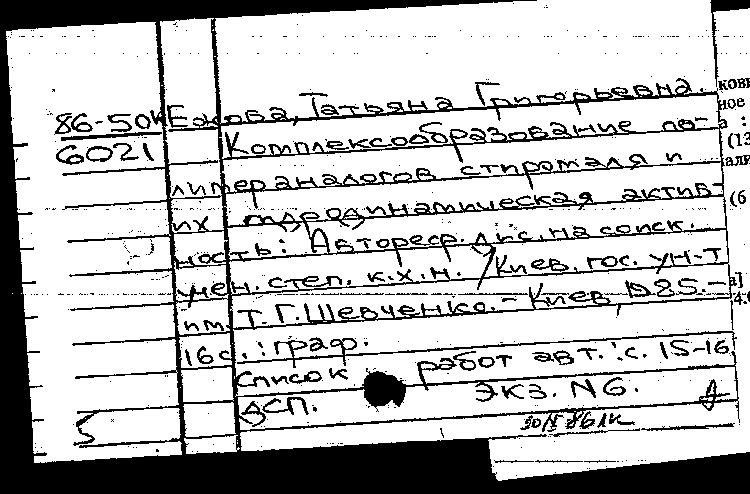 86-50к Ежова, Татьяна Григорьевна.
6021 Комплексообразование по-
лимераналогов стиромаля и
их гидродинамическая актив-
ность: Автореф. дис. на соиск.
учен. степ. к.х.н. / Киев. гос. ун-т
им. Т.Г. Шевченко. - Киев, 1985. -
16 с. : граф.
Список работ авт.: с. 15-16.
ДСП. Экз. N 6.
5